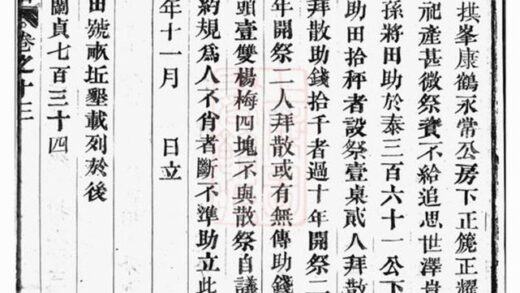 拱峯康鶴永常公房下正篪正耀
祀產甚微祭資不給追思世澤
孫將田助於泰三百六十一公下
助田拾秤者設祭壹桌貳人拜散
拜散助錢拾千者過十年開祭二
年開祭二人拜散或有無傳助錢
頭壹雙楊梅四塊不與散祭自議
約規為人不肖者斷不準助立此
年十一月 日立
田號畝坵墾載列於後
蘭貞七百三十四
卷之十三